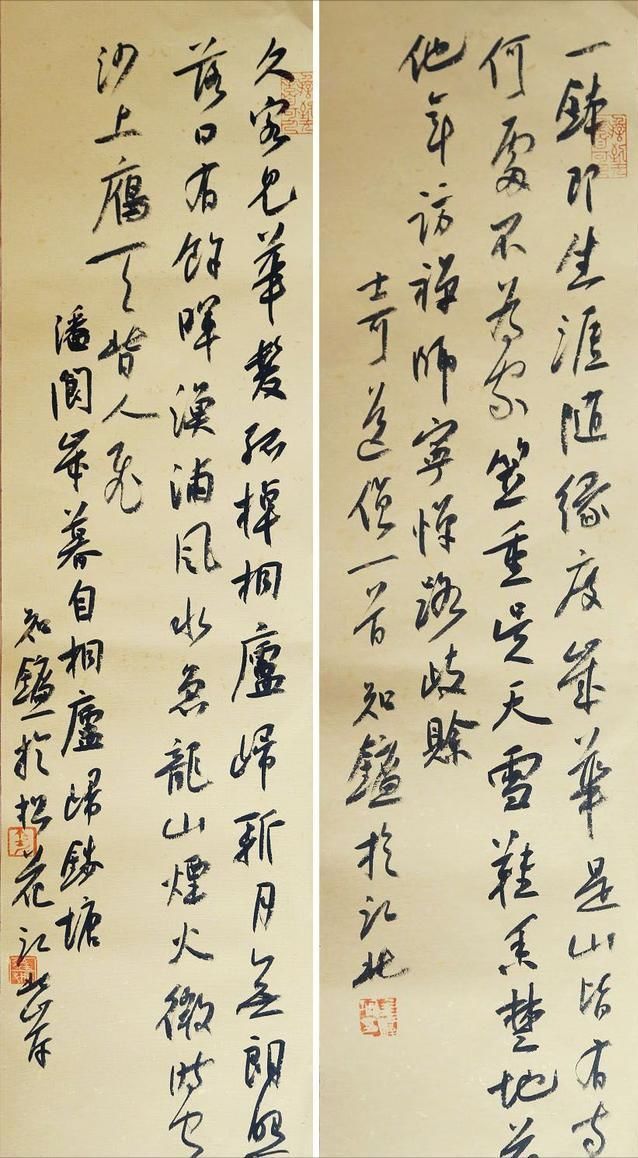 一鉢即生涯隨緣度歲華是山皆有寺
何處不為家笠重吳天雪鞋香楚地花
他年訪禪師寧憚路岐賒
士可送僧一首 知 於江北
久客見華髮孤棹桐廬歸新月無朗照
落日有餘暉漁浦風水急龍山煙火微時
沙上雁一一皆人飛
潘閬歲暮自桐廬歸錢塘
知 於松花江岸